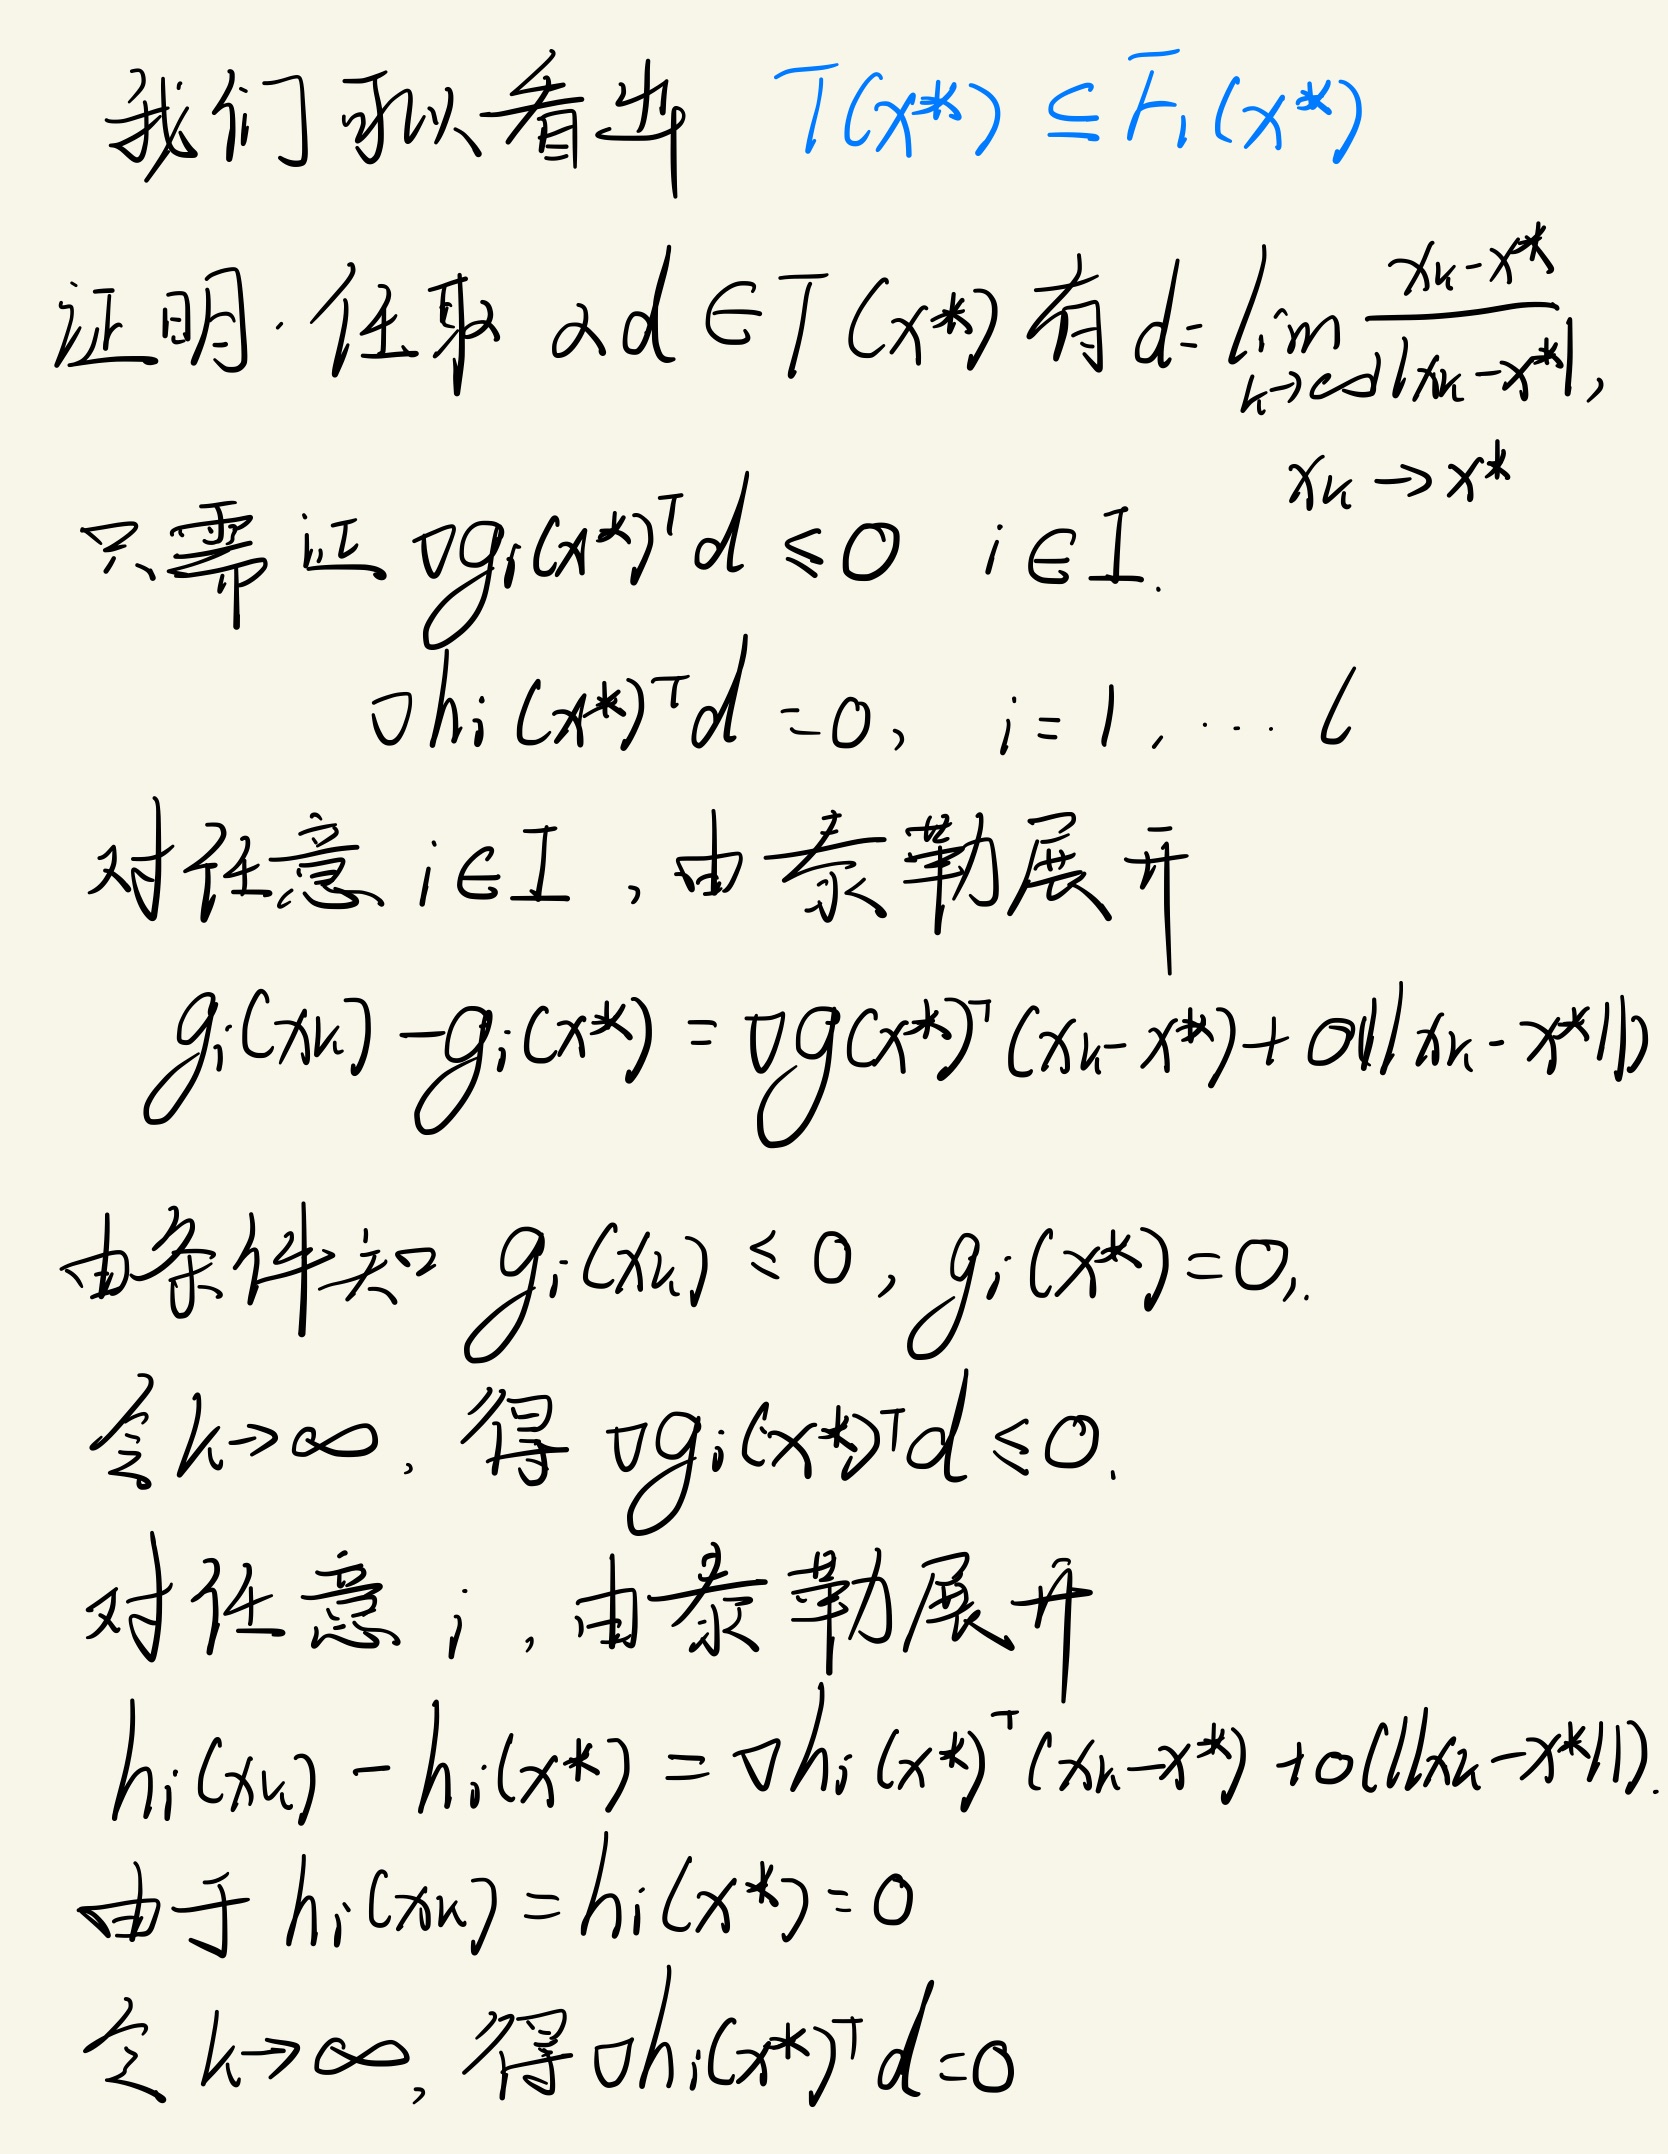 我们可以看出 T(x*) ⊆ F₁(x*)
证明. 任取 αd∈T(x*) 有 d=lim_{k→∞} (x_k-x*)/||x_k-x*||,
x_k→x*
只需证 ∇g_i(x*)ᵀd ≤0 i∈I.
∇h_i(x*)ᵀd =0, i=1, … l
对任意 i∈I ,由泰勒展开
g_i(x_k)-g_i(x*) = ∇g(x*)ᵀ(x_k-x*)+o(||x_k-x*||)
由条件知 g_i(x_k) ≤ 0, g_i(x*)=0,.
令k→∞, 得 ∇g_i(x*)ᵀd ≤0.
对任意 i ,由泰勒展开
h_i(x_k) - h_i(x*) = ∇h_i(x*)ᵀ(x_k-x*) +o(||x_k-x*||).
由于 h_i(x_k)=h_i(x*)=0
令 k→∞, 得∇h_i(x*)ᵀd=0